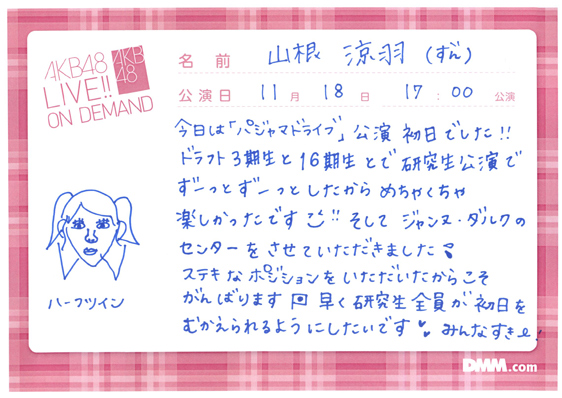 AKB48
LIVE!!
ON DEMAND
AKB
48
名前 山根 涼羽 (ずん)
公演日 11月 18日 17:00 公演
今日は「パジャマドライブ」公演 初日でした!!
ドラフト3期生と16期生とで研究生公演で
ずーっとずーっとしたから めちゃくちゃ
楽しかったです!! そして ジャンヌ・ダルクの
センターを させていただきました
ステキな ポジションを いただいたからこそ
がんばります 早く 研究生 全員が 初日を
むかえられるようにしたいです みんなすき
ハーフツイン
DMM.com